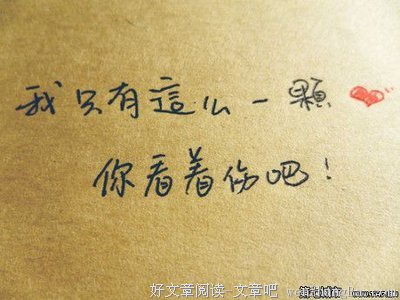 我只有這么一顆
你看着伤吧！
好文章阅读 文章吧